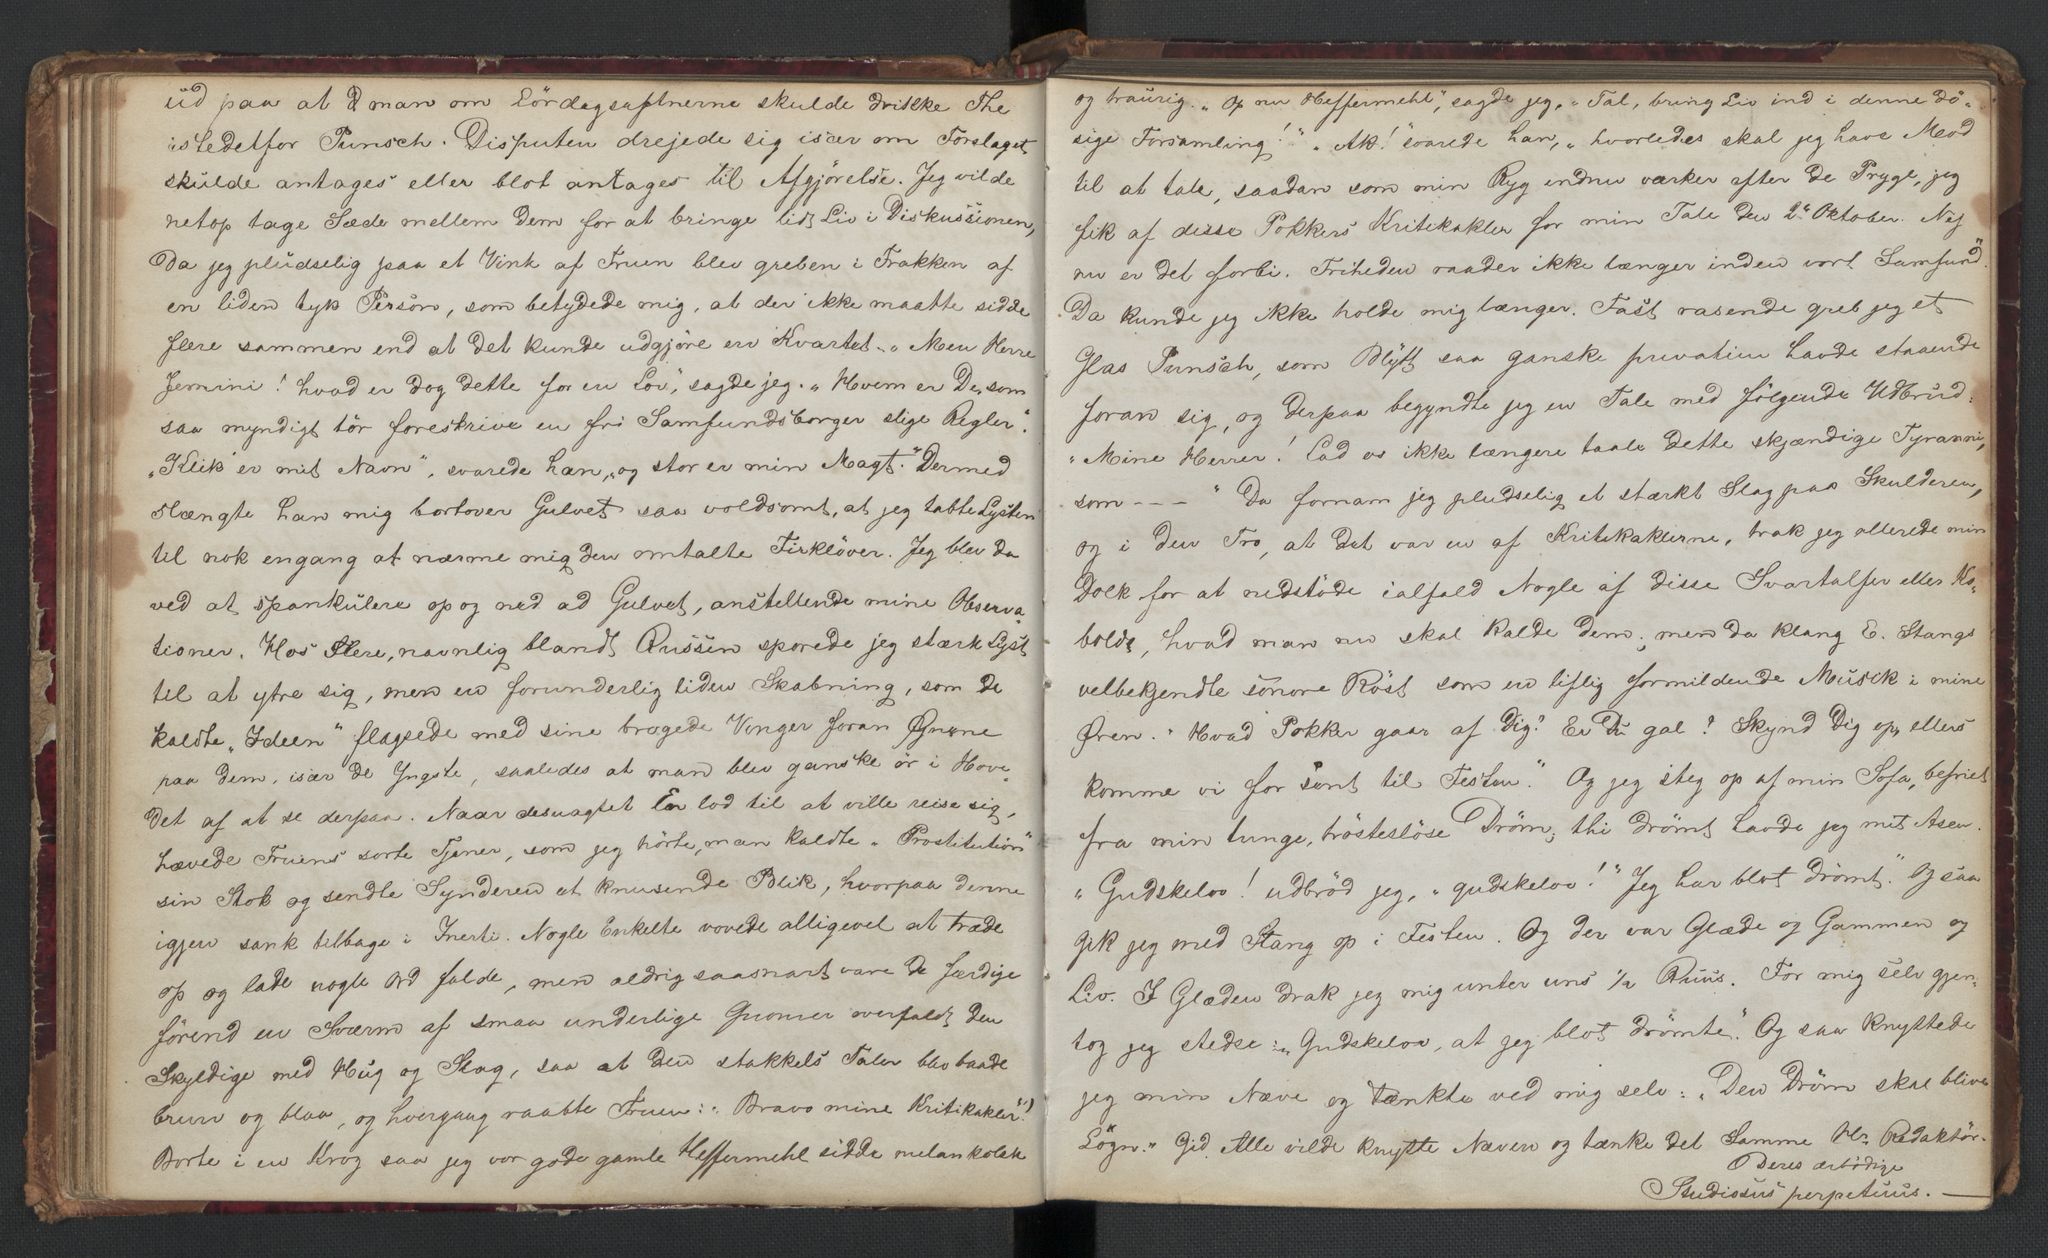 ud paa at man om Lördagsaftnerne skulde drikke The
istedetfor Punsch. Disputen drejede sig især om Forslaget
skulde antages eller blot antages til Afgjörelse. Jeg vilde
netop tage Sæde mellem dem for at bringe lidt Liv i Diskussionen,
da jeg pludselig paa et Vink af Fruen blev greben i Frakken af
en liden tyk Person, som betydede mig, at der ikke maatte sidde
flere sammen end at det kunde udgjöre en Kvartet. „Men Herre
Jemini! hvad er dog dette for en Lov", sagde jeg. „Hvem er De, som
saa myndigt tör foreskrive en fri Samfundsborger slige Regler".
„Klik er mit Navn", svarede han, „og stor er min Magt." Dermed
slængte han mig bortover Gulvet saa voldsomt, at jeg tabte Lysten
til nok engang at nærme mig den omtalte Firklöver. Jeg blev da
ved at spankulere op og ned ad Gulvet, anstellende mine Observa-
tioner. Hos Flere, navnlig blandt Russen sporede jeg stærk Lyst
til at ytre sig, men en forunderlig liden Skabning, som de
kaldte „Ideen" flagsede med sine brogede Vinger foran Øjnene
paa dem, især de Yngste, saaledes at man blev ganske ör i Hove-
det af at se derpaa. Naar desuagtet En lod til at ville reise sig,
hævede Fruens sorte Tjener, som jeg hörte, man kaldte „Prostitution"
sin Stok og sendte Synderen et knusende Blik, hvorpaa denne
igjen sank tilbage i Inerti. Nogle Enkelte vovede alligevel at træde
op og lade nogle Ord falde, men aldrig saasnart vare de færdige
förend en Sværm af smaa underlige Gnomer overfaldt den
Skyldige med Hug og Slag, saa at den stakkels Taler blev baade
brun og blaa, og hvergang raabte Fruen: „Bravo mine Kritikakler"!
Borte i en Krog saa jeg vor gode gamle Heffermehl sidde melankolsk
og traurig. „Op nu Heffermehl", sagde jeg, „Tal, bring Liv ind i denne dö-
sige Forsamling!" „Ak!" svarede han, „hvorledes skal jeg have Mod
til at tale, saadan som min Ryg endnu værker efter de Prygl, jeg
fik af disse Pokkers Kritikakler for min Tale den 2den Oktober. Nej
nu er det forbi. Friheden raader ikke længer inden vort Samfund."
Da kunde jeg ikke holde mig længer. Fast rasende greb jeg et
Glas Punsch, som Blytt saa ganske privatim havde staaende
foran sig, og derpaa begyndte jeg en Tale med fölgende Udbrud:
„Mine Herrer! Lad os ikke længere taale dette skjændige Tyranni,
som - - - " Da fornam jeg pludselig et stærkt Slag paa Skulderen,
og i den Tro, at det var en af Kritikaklerne, trak jeg allerede min
Dolk for at nedstöde ialfald Nogle af disse Svartalfer eller Ko-
bolde, hvad man nu skal kalde dem; men da klang E. Stangs
velbekjendte sonore Röst som en liflig formildende Musik i mine
Øren. „Hvad Pokker gaar af Dig? Er Du gal? Skynd Dig op, ellers
komme vi for sent til Festen". Og jeg steg op af min Sofa, befriet
fra min tunge, tröstesløse Dröm; thi drömt havde jeg mit Asen.
„Gudskelov! udbröd jeg, „gudskelov!" Jeg har blot drömt". Og saa
gik jeg med Stang op i Festen. Og der var Glæde og Gammen og
Liv. I Glæden drak jeg mig unter uns ½ Ruus. For mig selv gjen-
tog jeg stedse: „Gudskelov, at jeg blot drömte". Og saa knyttede
jeg min Næve og tænkte ved mig selv: „Den Dröm skal blive
Lögn." Gid Alle vilde knytte Næven og tænke det Samme Hr. Redaktör.
Deres ærbödige
Studiosus perpetuus. —